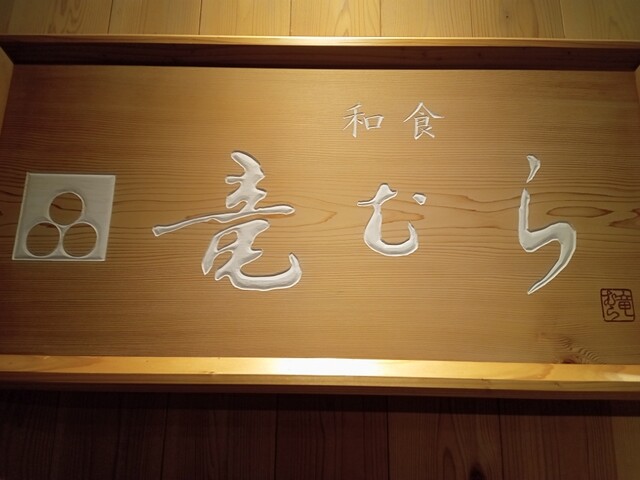 和食
竜むら
竜
むら